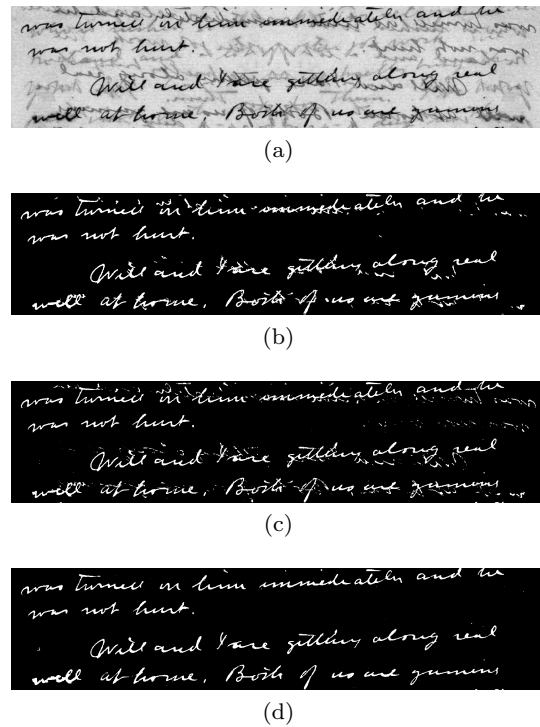 was turned in him immediately and he
was not hurt.
Will and I are getting along real
well at home. Both of us are gaining
(a)
was turned in him immediately and he
was not hurt.
Will and I are getting along real
well at home. Both of us are gaining
(b)
was turned in him immediately and he
was not hurt.
Will and I are getting along real
well at home. Both of us are gaining
(c)
was turned in him immediately and he
was not hurt.
Will and I are getting along real
well at home. Both of us are gaining
(d)